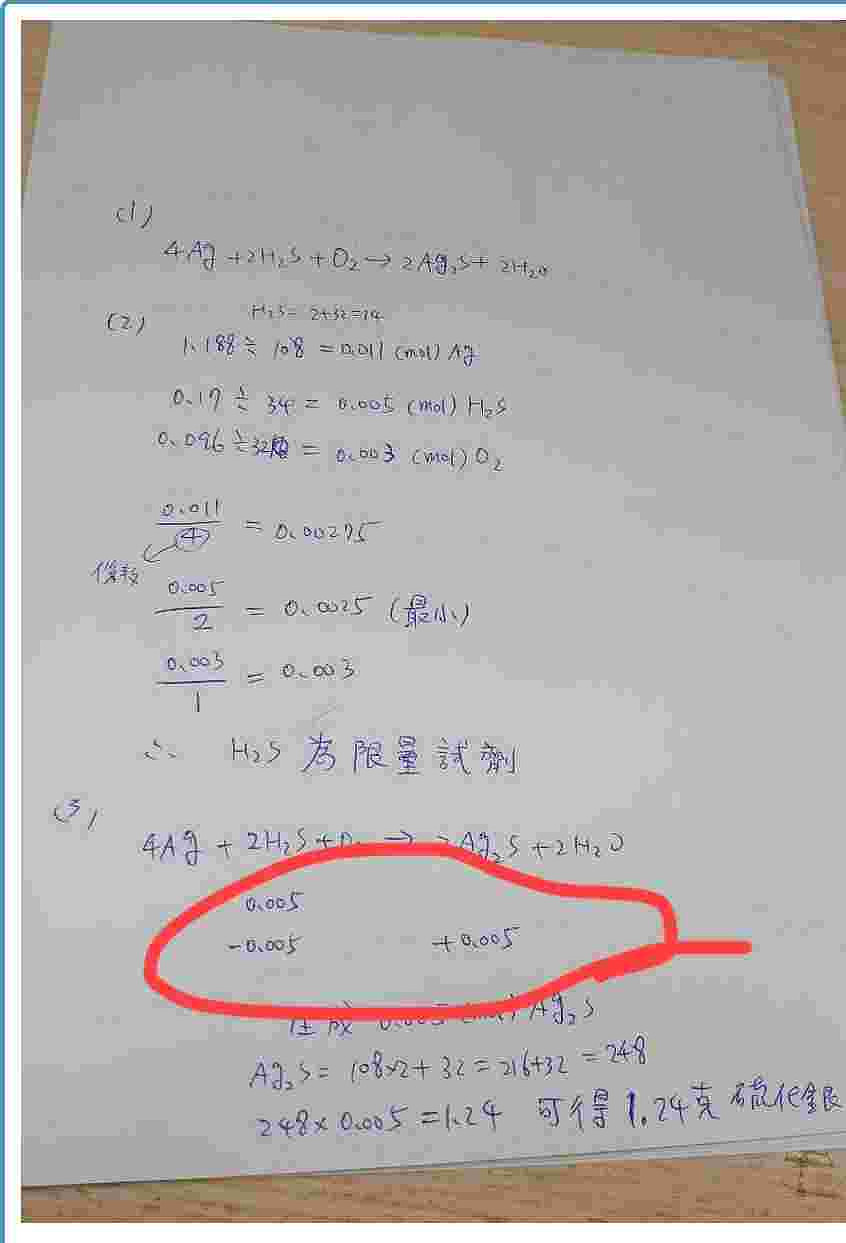 (1)
4Ag + 2H₂S + O₂ → 2Ag₂S + 2H₂O
(2)
H₂S = 2+32=24
1.188 ÷ 108 = 0.011 (mol) Ag
0.17 ÷ 34 = 0.005 (mol) H₂S
0.096 ÷ 32 = 0.003 (mol) O₂
0.011
4
= 0.00275
係數
0.005
2
= 0.0025 (最小)
0.003
1
= 0.003
∴ H₂S 為限量試劑
(3)
4Ag + 2H₂S + O₂ → 2Ag₂S + 2H₂O
0.005
-0.005 +0.005
生成 0.005 (mol) Ag₂S
Ag₂S = 108×2 + 32 = 216+32 = 248
248 × 0.005 = 1.24 可得 1.24克 硫化銀